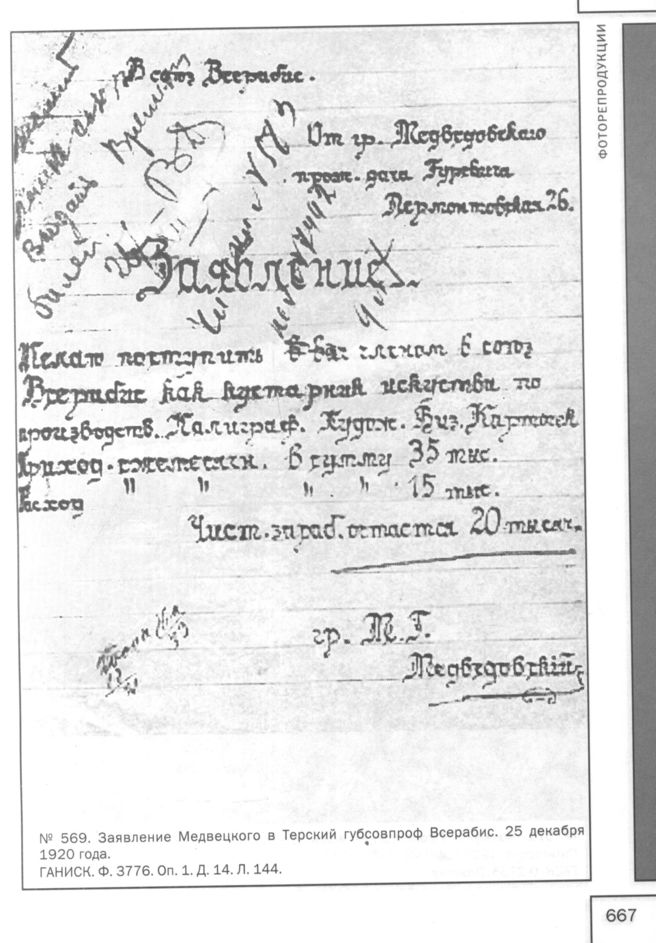 ФОТОРЕПРОДУКЦИИ
В союз Всерабис.
От гр. Медведовскаго
прож. дача Гуревича
Лермонтовская 26.
Выдать Времен
билет
Заявление.
Желаю поступить членом в союз
Всерабис как кустарник искуства по
производств. Калиграф. Худож. Виз. Карточек
Приход. ежемесячн. в сумму 35 тыс.
Расход " " " " 15 тыс.
Чист. зараб. остается 20 тысяч.
гр. М. Г.
Медведовский
№ 569. Заявление Медвецкого в Терский губсовпроф Всерабис. 25 декабря
1920 года.
ГАНИСК. Ф. 3776. Оп. 1. Д. 14. Л. 144.
667